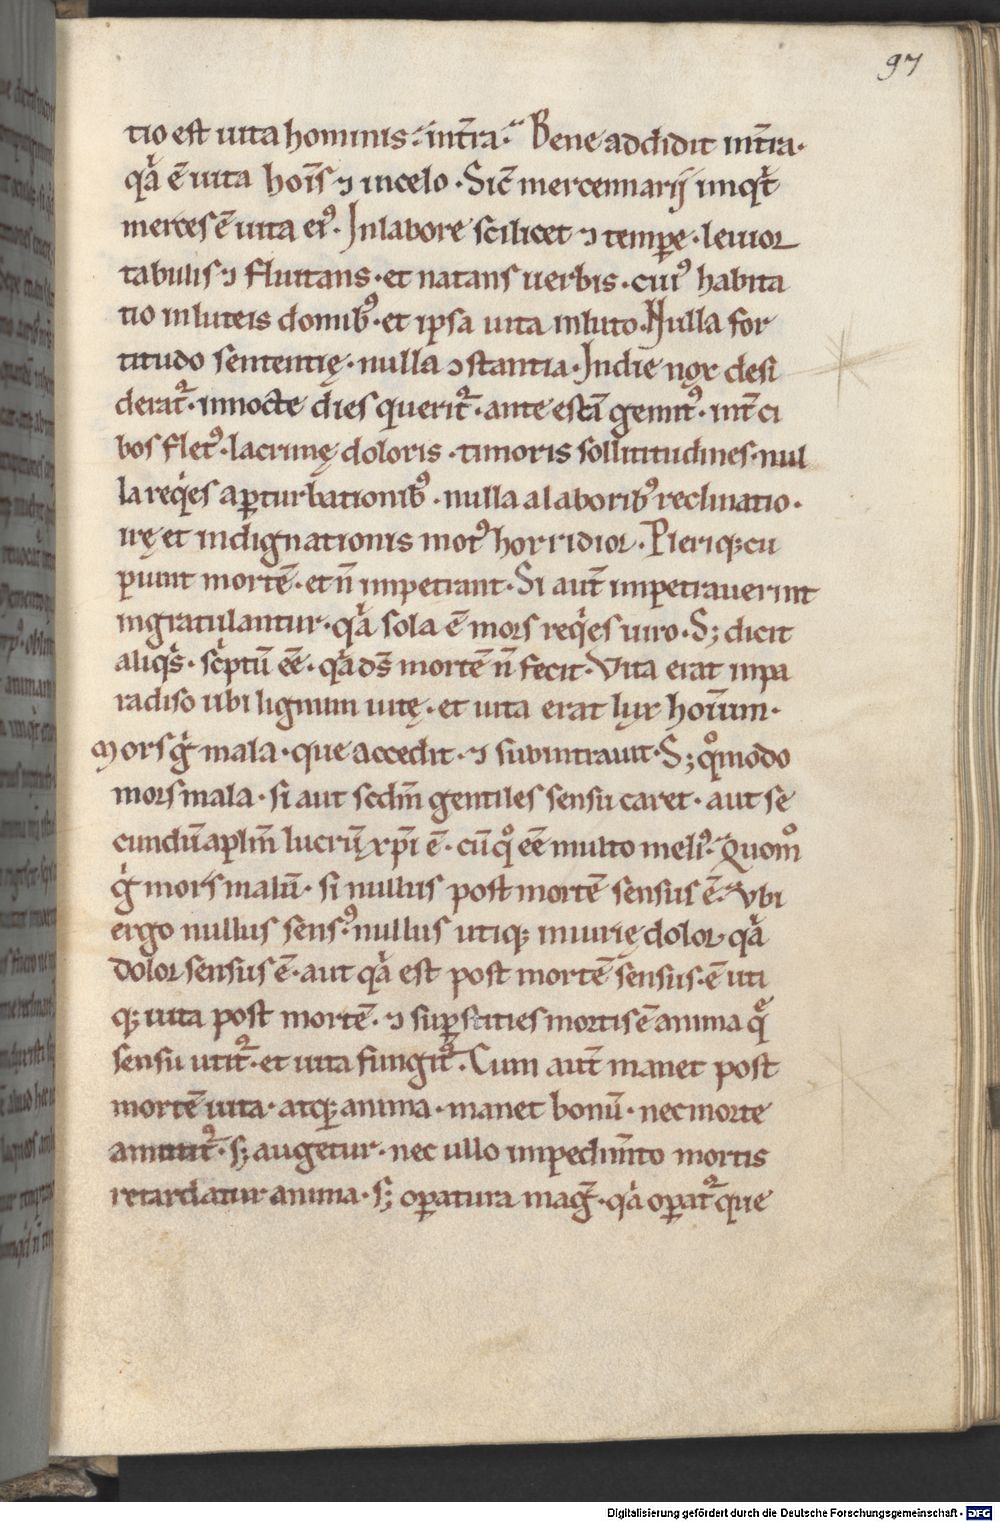 97
tio est uita hominis.' int̄ra.'' Bene addidit int̄ra.
qͥa ē uita hoīs ⁊ incelo. Sic̄ mercennarij inqͥt
merces ē uita eiꝰ. Inlabore scilicet ⁊ temꝑe. leuior
tabulis ⁊ fluitans. et natans uerbis. cuiꝰ habita
tio inluteis domibꝰ. et ipsa uita inluto. Nulla for
titudo sententię. nulla ɔstantia. Indie nox desi
derat᷑. innocte dies querit᷑. ante escā gemitꝰ. int̄ ci
bos fletꝰ. lacrimę doloris. timoris sollititudines. nul
la reqͥes aꝑturbationibꝰ. nulla alaboribꝰ reclinatio.
irę et indignationis motꝰ horridior. Pleriqꝫ cu
piunt mortē. et n̄ impetrant. Si aut̄ impetrauerint
ingratulantur. qͥa sola ē mors reqͥes uiro. Sꝫ dicit
aliqͥs. scͥptū eē. qͥa ds̄ mortē n̄ fecit. Vita erat inpa
radiso ubi lignum uitę. et uita erat lux hoīum.
Mors gͥ mala. que accedit. ⁊ subintrauit. Sꝫ qͦmodo
mors mala. si aut scdm̄ gentiles sensu caret. aut se
cundū aplm̄ lucrū xp̄i ē. cū qͦ eē multo meliꝰ. Quomͦ
gͥ mors malū. si nullus post mortē sensus ē. Vbi
ergo nullus sensꝰ. nullus utiqꝫ iniurię dolor. qͥa
dolor sensus ē. aut qͥa est post mortē sensus. ē uti
qꝫ uita post mortē. ⁊ suꝑstities mortis ē anima q̄
sensu utit᷑. et uita fungit᷑. Cum aut̄ manet post
mortē uita. atqꝫ anima. manet bonū. nec morte
amittit᷑. sꝫ augetur. nec ullo impedim̄to mortis
retardatur anima. sꝫ oꝑatura mag̅. qͥa oꝑat᷑ que
Digitalisierung gefördert durch die Deutsche Forschungsgemeinschaft - DFG